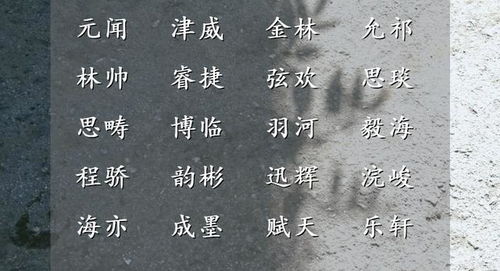 元闻 津威 金林 允祁
林帅 睿捷 弦欢 思琰
思畴 博临 羽河 毅海
程骄 韵彬 迅辉 浣峻
海亦 成墨 赋天 乐轩